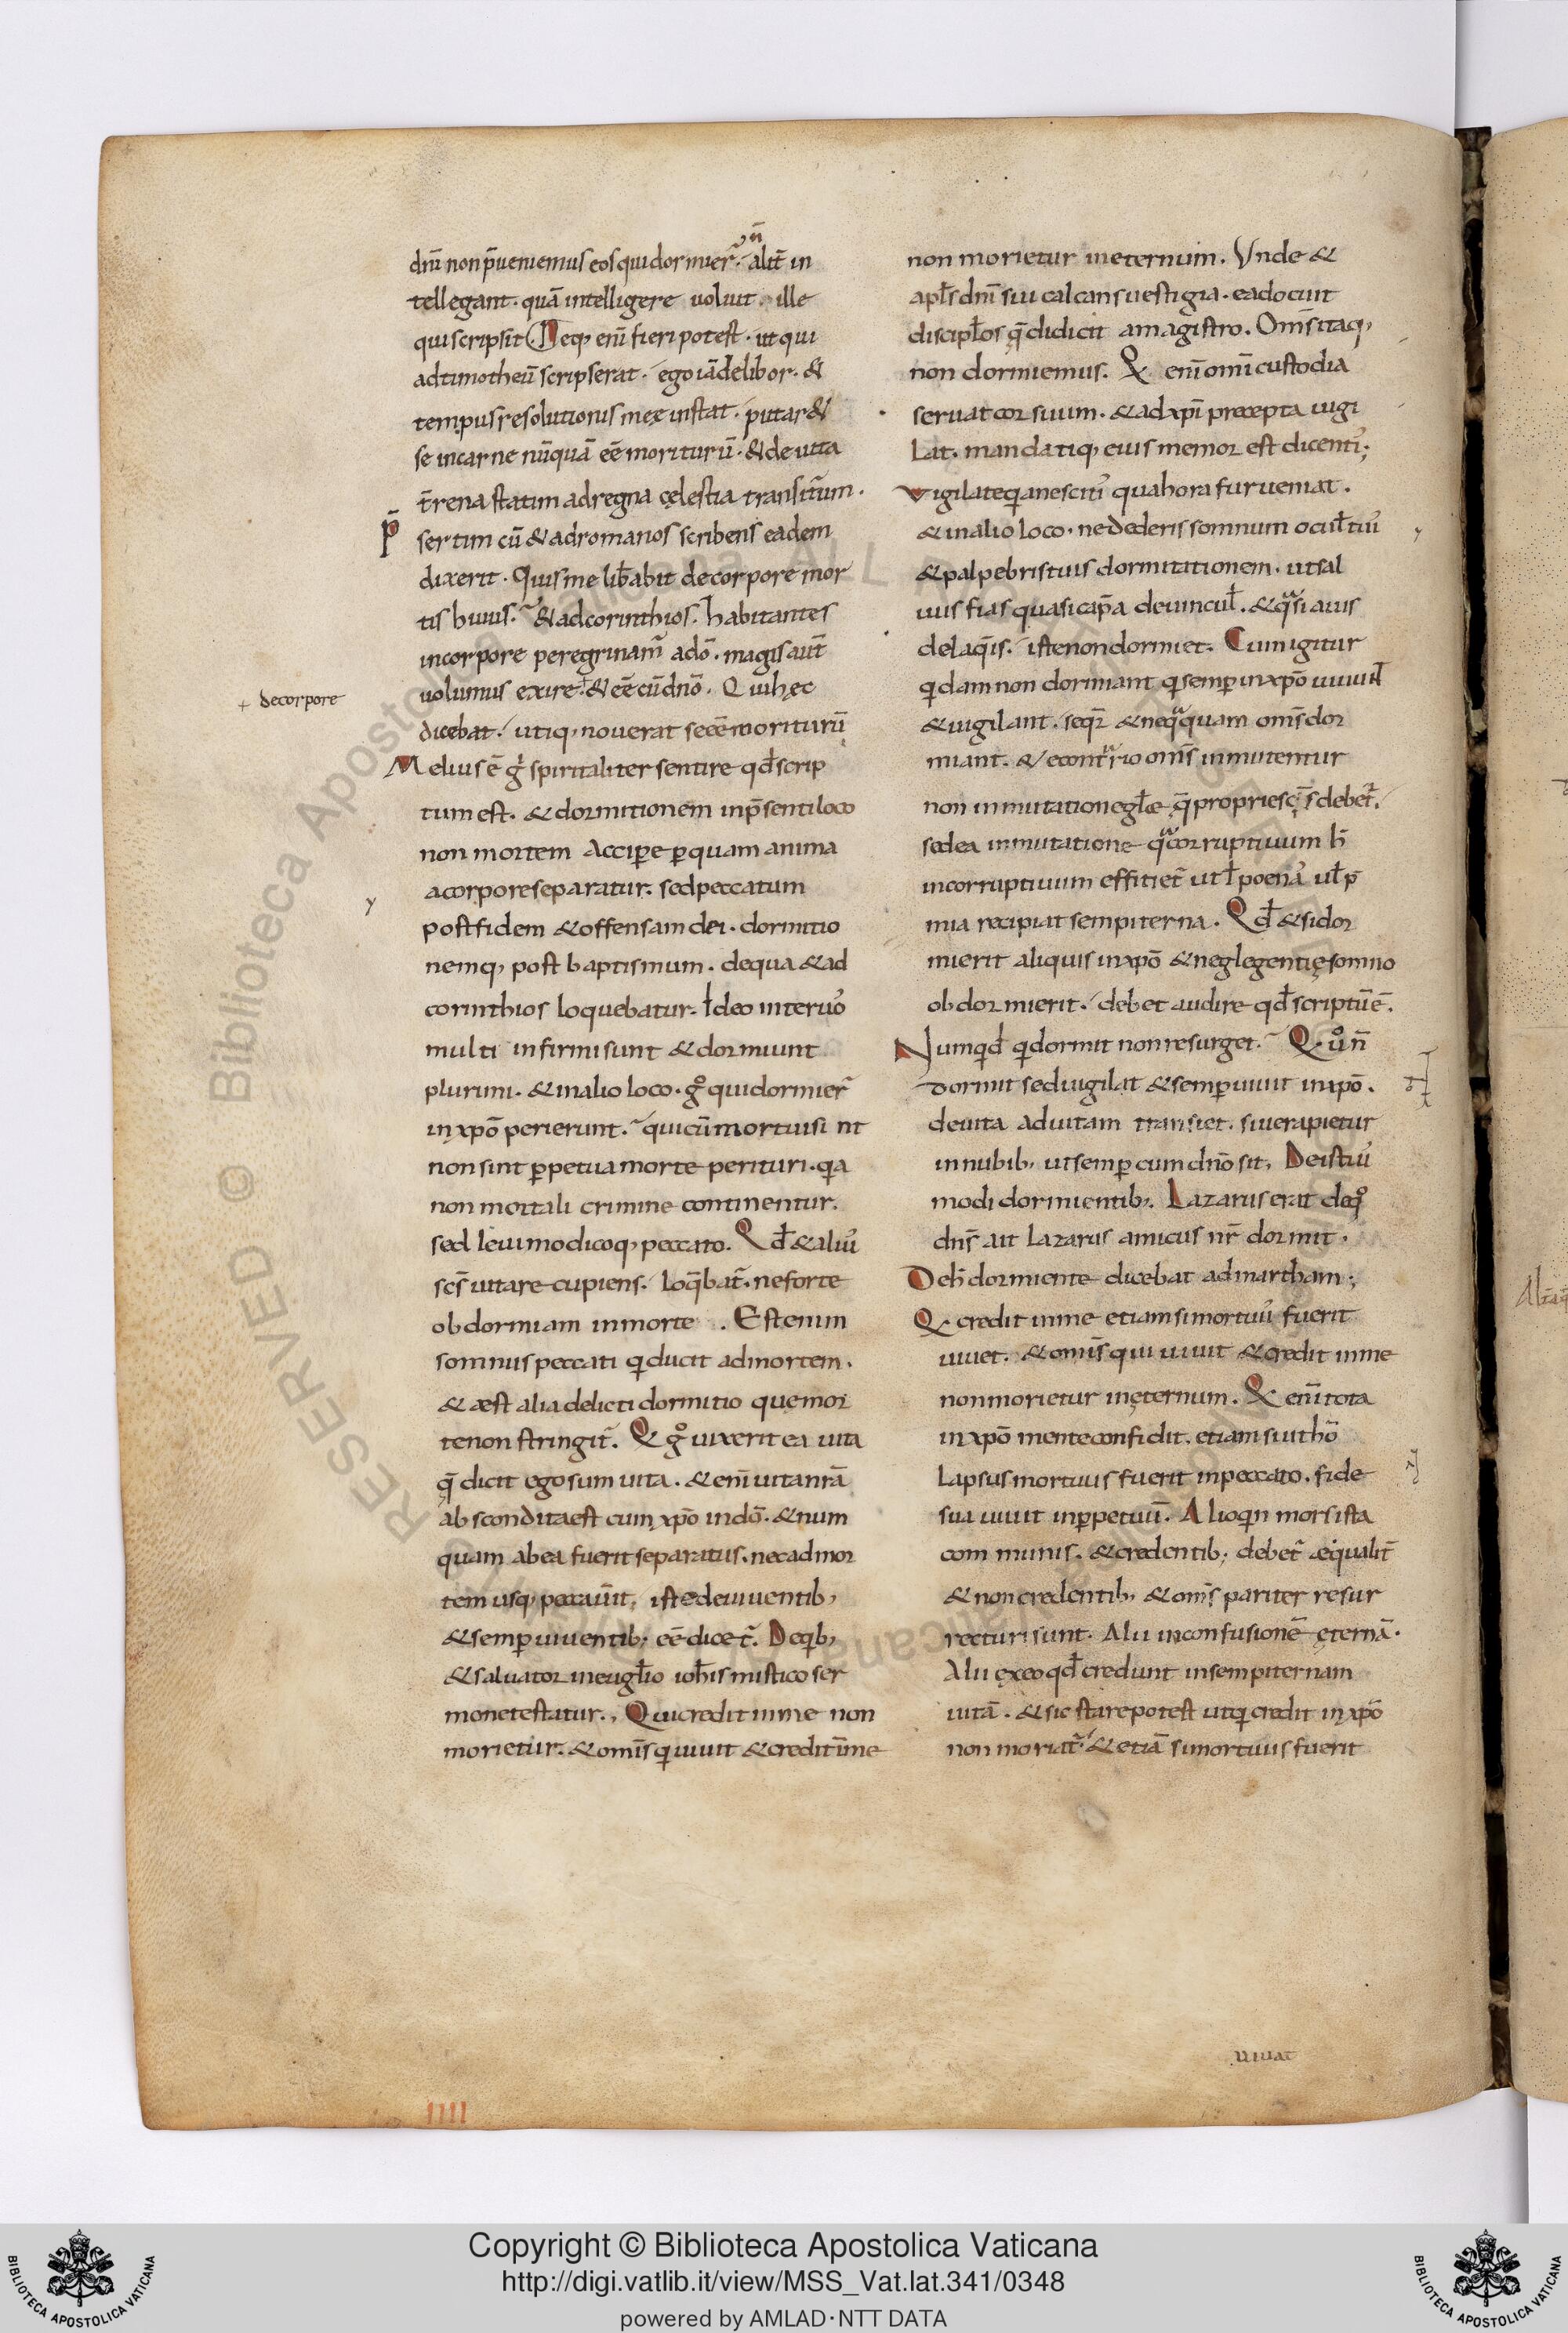 dnī non p̄ueniemus eos qui dormier̄. n̄ alit̄ in
tellegant. quā intelligere uoluit. ille
qui scripsit. Neq; enī fieri potest. ut qui
ad timotheū scripserat. ego iā delibor. &
tempus resolutionis meę instat. putar&
se in carne nūquā eē moriturū. & de uita
t̄rena statim ad regna cęlestia transitum.
p̄sertim cū & ad romanos scribens eadem
dixerit. Quis me lib̄abit de corpore mor
tis huius. & ad corinthios. habitantes
in corpore peregrinam̄ a dō. magis aut̄
uolumus exire. & eē cū dnō. Qui hęc
+ de corpore
dicebat. utiq; nouerat se eē moriturū
Melius ē g̊ spiritaliter sentire qd̄ scrip
tum est. & dormitionem in p̄senti loco
non mortem Accipere p̱ quam anima
a corpore separatur. sed peccatum
post fidem & offensam dei. dormitio
nemq; post baptismum. de qua & ad
corinthios loquebatur. Ideo inter uo᾽
multi infirmi sunt & dormiunt
plurimi. & in alio loco. g̊ qui dormier̄
in xp̄o perierunt. qui cū mortui si nt
non sint p̱petua morte perituri. qa
non mortali crimine continentur.
sed leui modicoq; peccato. Qd̄ & aliu᾽
scs̄ uitare cupiens. loq̄bat̄. ne forte
obdormiam in morte. Est enim
somnus peccati q̱ ducit ad mortem.
& æst alia delicti dormitio que mor
te non stringit̄. Q g̊ uixerit ea uita
q̄ dicit ego sum uita. & enī uita nr̄ā
abscondita est cum xp̄o in dō. & num
quam ab ea fuerit separatus. nec ad mor
tem usq; peccauīt. iste de uiuentib;
& semp̱ uiuentib; eē dicet̄. De qb;
& saluator in euglio ioh̄is mistico ser
mone testatur. Qui credit in me non
morietur. & omīs q̱ uiuit & credit ī me
non morietur in eternum. Vnde &
apl̄s dnī sui calcans uestigia. ea docuit
discipl̄os q̄ didicit a magistro. Omīs itaq;
non dormiemus. Q enī omī custodia
seruat cor suum. & ad xp̄i precepta uigi
lat. mandatiq; eius memor est dicenti᾽;
Vigilate q̱a nesciti᾽ qua hora fur ueniat.
& in alio loco. ne dederis somnum ocul̄ tiu᾽
& palpebris tuis dormitationem. ut sal
uus fias quasi cap̄a de uincul̄. & qͣsi auis
de laq̄is. iste non dormiet. Cum igitur
q̱dam non dormiant q̱ semp̱ in xp̄o uiuūt
& uigilant. seqr̄ & neqͣquam omīs dor
miant. & e contͣrio omīs inmutentur
non inmutatione gl̄æ q̄ proprie sc̄is debet̄.
sed ea inmutatione qͣ corruptiuum h̄
incorruptiuum effitiet̄ ut l̄ poenā ul̄ p̄
mia recipiat sempiterna. Qd̄ & si dor
mierit aliquis in xp̄o & neglegentię somno
obdormierit. debet audire qd̄ scriptū ē.
Numqd̄ q̱ dormit non resurget. Q ů n̄
dormit sed uigilat & semp̱ uiuit in xp̄o.
de uita ad uitam transiet. siue rapietur
in nubib; ut semp̱ cum dnō sit. De istiu᾽
modi dormientib; Lazarus erat de qͦ
dns̄ ait Lazarus amicus nr̄ dormit.
De h̄ dormiente dicebat ad martham;
Q credit in me etiam si mortuu᾽ fuerit
uiuet. & omīs qui uiuit & credit in me
non morietur in ęternum. Q enī tota
in xp̄o mente confidit. etiam si ut hō
lapsus mortuus fuerit in peccato. fide
sua uiuit in p̱petuū. Alioqn mors ista
communis. & credentib; debet̄ æqualit̄
& non credentib; & omīs pariter resur
recturi sunt. Alii in confusionē ęternā.
Alii ex eo qd̄ credunt in sempiternam
uitā. & sic stare potest ut q̱ credit in xp̄o
non moriat̄. & etiā si mortuus fuerit
uiuat
IIII
Copyright © Biblioteca Apostolica Vaticana
http://digi.vatlib.it/view/MSS_Vat.lat.341/0348
powered by AMLAD·NTT DATA
BIBLIOTECA APOSTOLICA VATICANA
BIBLIOTECA APOSTOLICA VATICANA